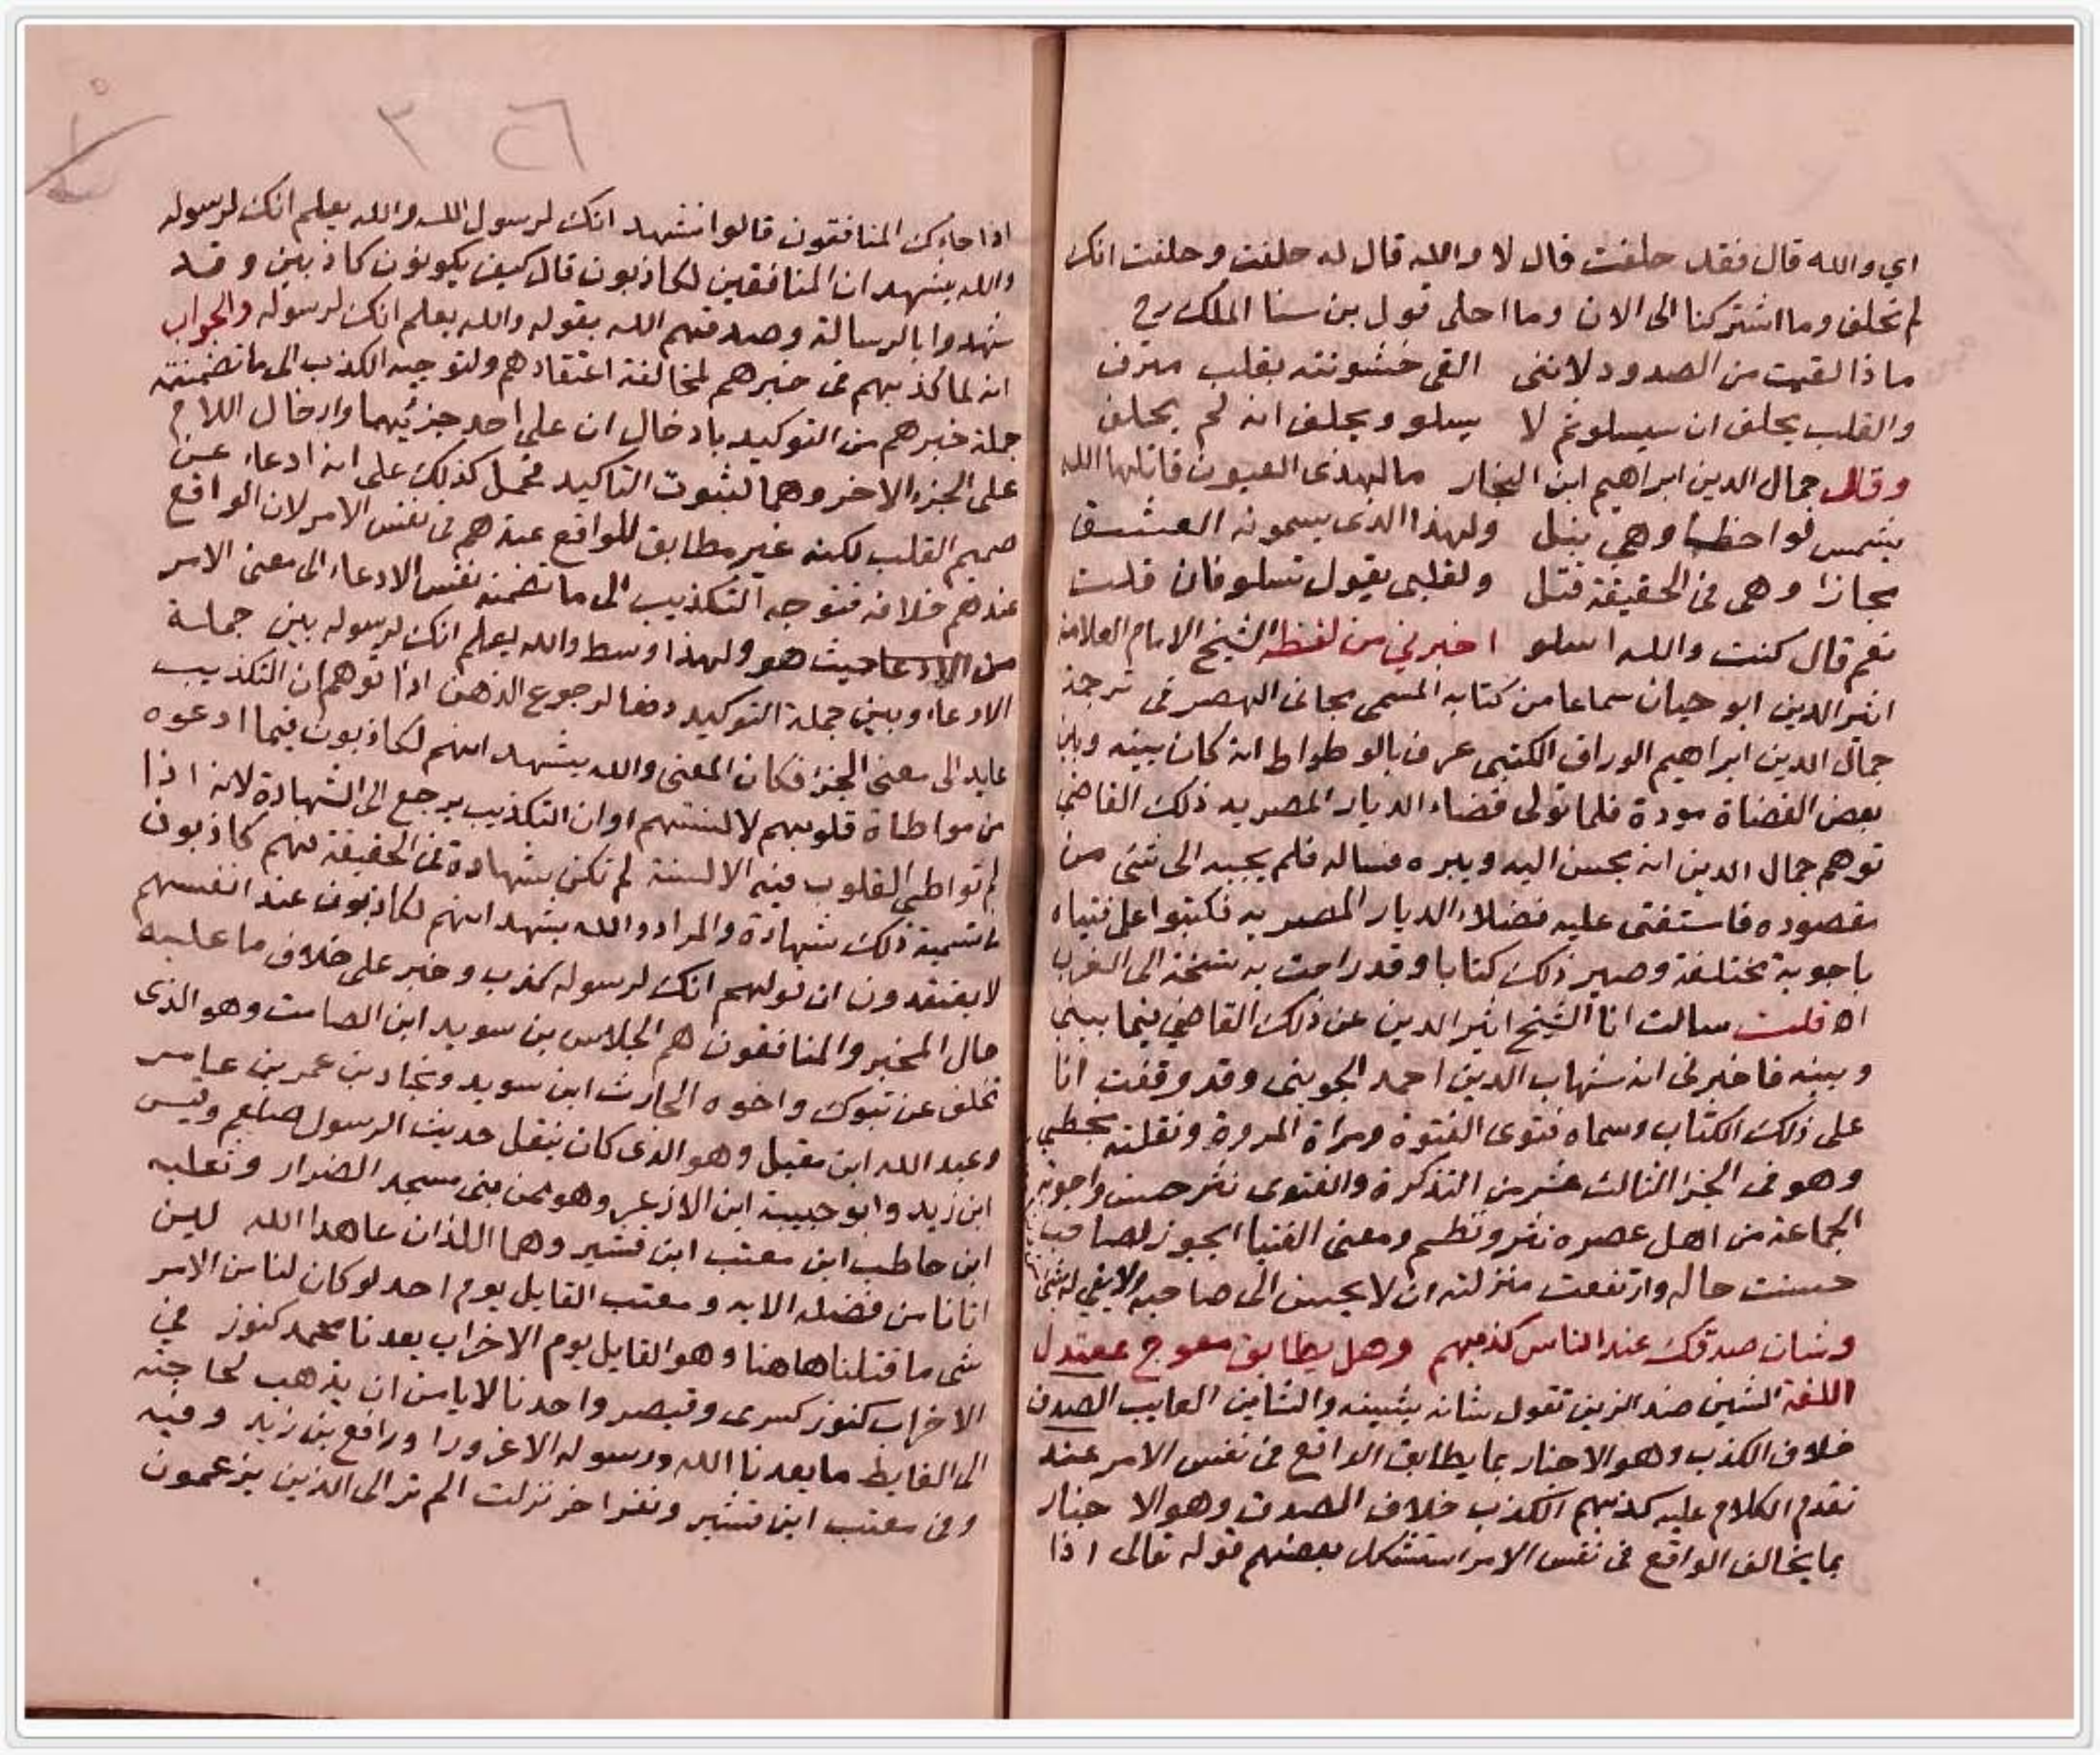 اي والله قال فقد حلفت قال لا والله قال له حلفت وحلفت انك
لم تحلف وما اشتركنا الى الان وما احلى قول بن سنا الملك رح
ماذا لقيت من الصدود لانني القى خشونته بقلب مترف
والقلب يحلف ان سيسلو ثم لا يسلو ويحلف انه لم يحلف
وقال جمال الدين ابراهيم ابن النجار ما لهذى العيون قاتلها الله
تسمى لواحظا وهي نبل ولهذا الذى يسمونه العشق
مجازا وهى فى الحقيقة قتل ولقلبى يقول تسلو فان قلت
نعم قال كنت والله اسلو اخبرني من لفظه الشيخ الامام العلامة
اثير الدين ابو حيان سماعا من كتابه المسمى مجانى الهصر فى ترجمة
جمال الدين ابراهيم الوراق الكتبى عرف بالوطواط انه كان بينه وبين
بعض القضاة مودة فلما تولى قضاء الديار المصريه ذلك القاضى
توهم جمال الدين انه يحسن اليه ويبره فساله فلم يجبه الى شئ من
مقصوده فاستفتى عليه فضلاء الديار المصريه فكتبوا على فتياه
باجوبة مختلفة وصير ذلك كتابا وقد راحت به نسخة الى الغرب
اه قلت سالت انا الشيخ اثير الدين عن ذلك القاضي فيما بينى
وبينه فاخبرنى انه شهاب الدين احمد الخوينى وقد وقفت انا
على ذلك الكتاب وسماه فتوى الفتوة ومراة المروة ونقلته بخطي
وهو فى الجزا الثالث عشر من التذكرة والفتوى نثر حسن واجوبة
الجماعة من اهل عصره نثر ونظم ومعنى الفتيا ايجوز لصاحب
حسنت حاله وارتفعت منزلته ان لا يحسن الى صاحبه ولا يفي له بشئ
وشان صدقك عند الناس كذبهم وهل يطابق معوج بمعتدل
اللغة الشين ضد الزين تقول شانه يشينه والشاين العايب الصدق
خلاف الكذب وهو الاخبار بما يطابق الواقع فى نفس الامر عند
تقدم الكلام عليه كذبهم الكذب خلاف الصدق وهو الا خبار
بما يخالف الواقع فى نفس الامر استشكل بعضهم قوله تعالى اذا
٣٤٦
اذا جاءك المنافقون قالوا نشهد انك لرسول الله والله يعلم انك لرسوله
والله يشهد ان المنافقين لكاذبون قال كيف يكونون كاذبين وقد
شهدوا بالرسالة وصدقهم الله بقوله والله يعلم انك لرسوله والجواب
انه لما كذبهم فى خبرهم لمخالفة اعتقادهم ولتوجيه الكذب الى ما تضمنته
جملة خبرهم من التوكيد بادخال ان على احد جزئيهما وادخال اللام
على الجزء الاخر وهما لثبوت التاكيد محمل كذلك على انه ادعاء عن
صميم القلب لكنه غير مطابق للواقع عندهم فى نفس الامر لان الواقع
عندهم خلافه فتوجه التكذيب الى ما تضمنه نفس الادعاء الى معنى الامر
من الادعا حيث هو ولهذا وسط والله يعلم انك لرسوله بين جملة
الادعاء وبين جملة التوكيد دفعا لرجوع الذهن اذا توهم ان التكذيب
عايد الى معنى الجزا فكان المعنى والله يشهد انهم لكاذبون فيما ادعوه
من مواطاة قلوبهم لالسنتهم او ان التكذيب يرجع الى الشهادة لانه اذا
لم تواطئ القلوب فيه الالسنة لم تكن بشهادة فى الحقيقة فهم كاذبون
فى تسمية ذلك شهادة والمراد والله يشهد انهم لكاذبون عند انفسهم
لا يعتقدون ان قولهم انك لرسوله كذب وخبر على خلاف ما عليه
حال المخبر والمنافقون هم الجلاس بن سويد ابن الصامت وهو الذى
تخلف عن تبوك واخوه الحارث ابن سويد وبجاد بن عمر بن عامر
وعبد الله ابن مقبل وهو الذى كان ينقل حديث الرسول صلعم وقيس
ابن زيد وابو حبيبة ابن الازعر وهو ممن بنى مسجد الضرار وثعلبه
ابن حاطب ابن معتب ابن قشير وهما اللذان عاهدا الله لين
اتانا من فضله الايه ومعتب القايل يوم احد لو كان لنا من الامر
شى ما قتلنا هاهنا وهو القايل يوم الاحزاب يعدنا محمد كنوز في
الاحزاب كنوز كسرى وقيصر واحدنا لا يامن ان يذهب لحاجته
الى الغايط ما يعدنا الله ورسوله الا غرورا ورافع بن زيد وفيه
وفى معتب ابن قشير ونفر اخر نزلت الم تر الى الذين يزعمون